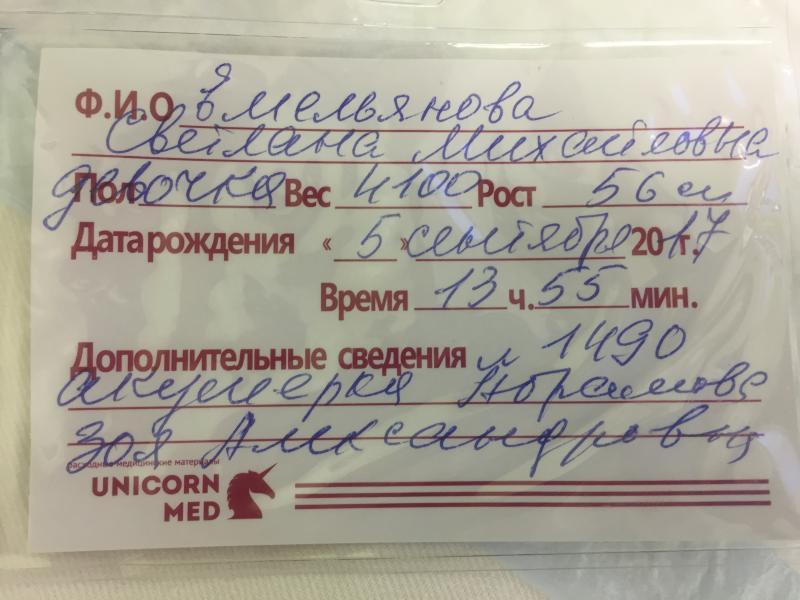 Ф.И.О Емельянова
Светлана Михайловна
Пол девочка Вес 4100 Рост 56 см
Дата рождения « 5 » сентября 2017 г.
Время 13 ч. 55 мин.
Дополнительные сведения и 1490
акушерка Абрамова
Зоя Александровна
расходные медицинские материалы
UNICORN
MED